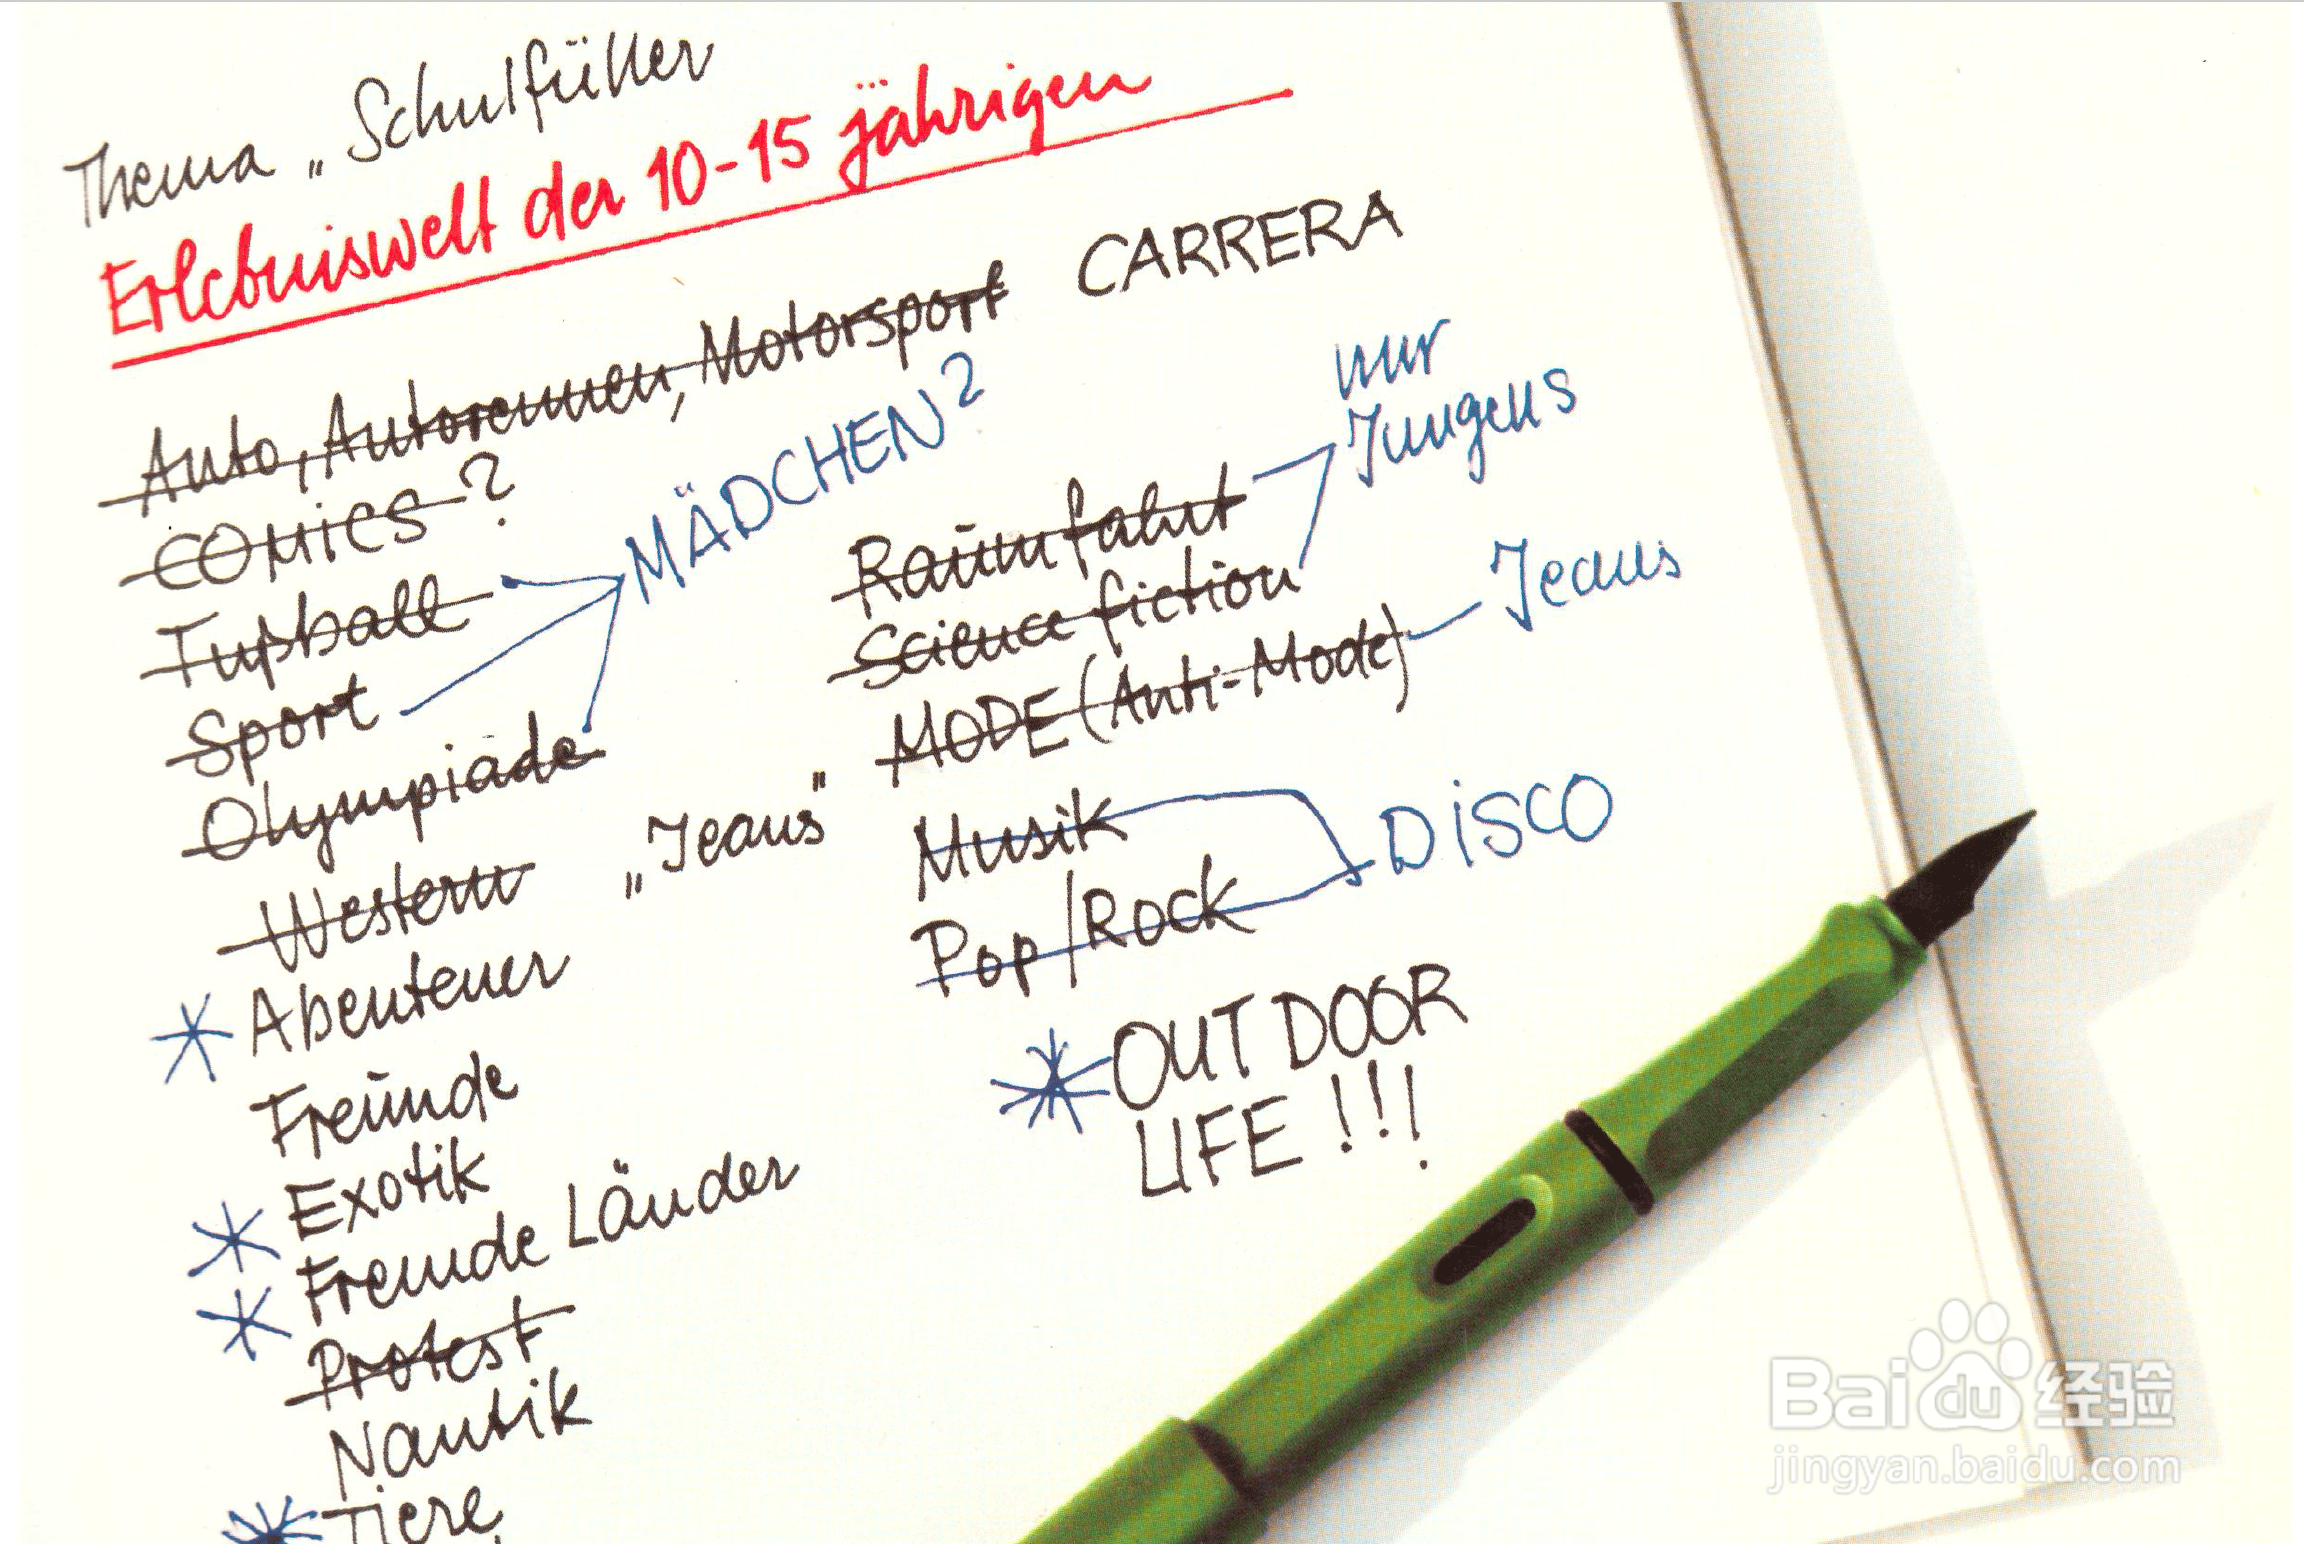 Thema „Schulfüller
Erlebniswelt der 10-15 jährigen
Auto, Autorennen, Motorsport CARRERA
COMICS ?
Fußball
Sport
Olympiade
MÄDCHEN?
Western „Jeans"
Abenteuer
Freunde
Exotik
Fremde Länder
Protest
Nautik
Tiere
Raumfahrt
Science fiction
nur
Jungens
MODE (Anti-Mode) Jeans
Musik
Pop/Rock
DISCO
OUTDOOR
LIFE !!!
Baidu 经验
jingyan.baidu.com